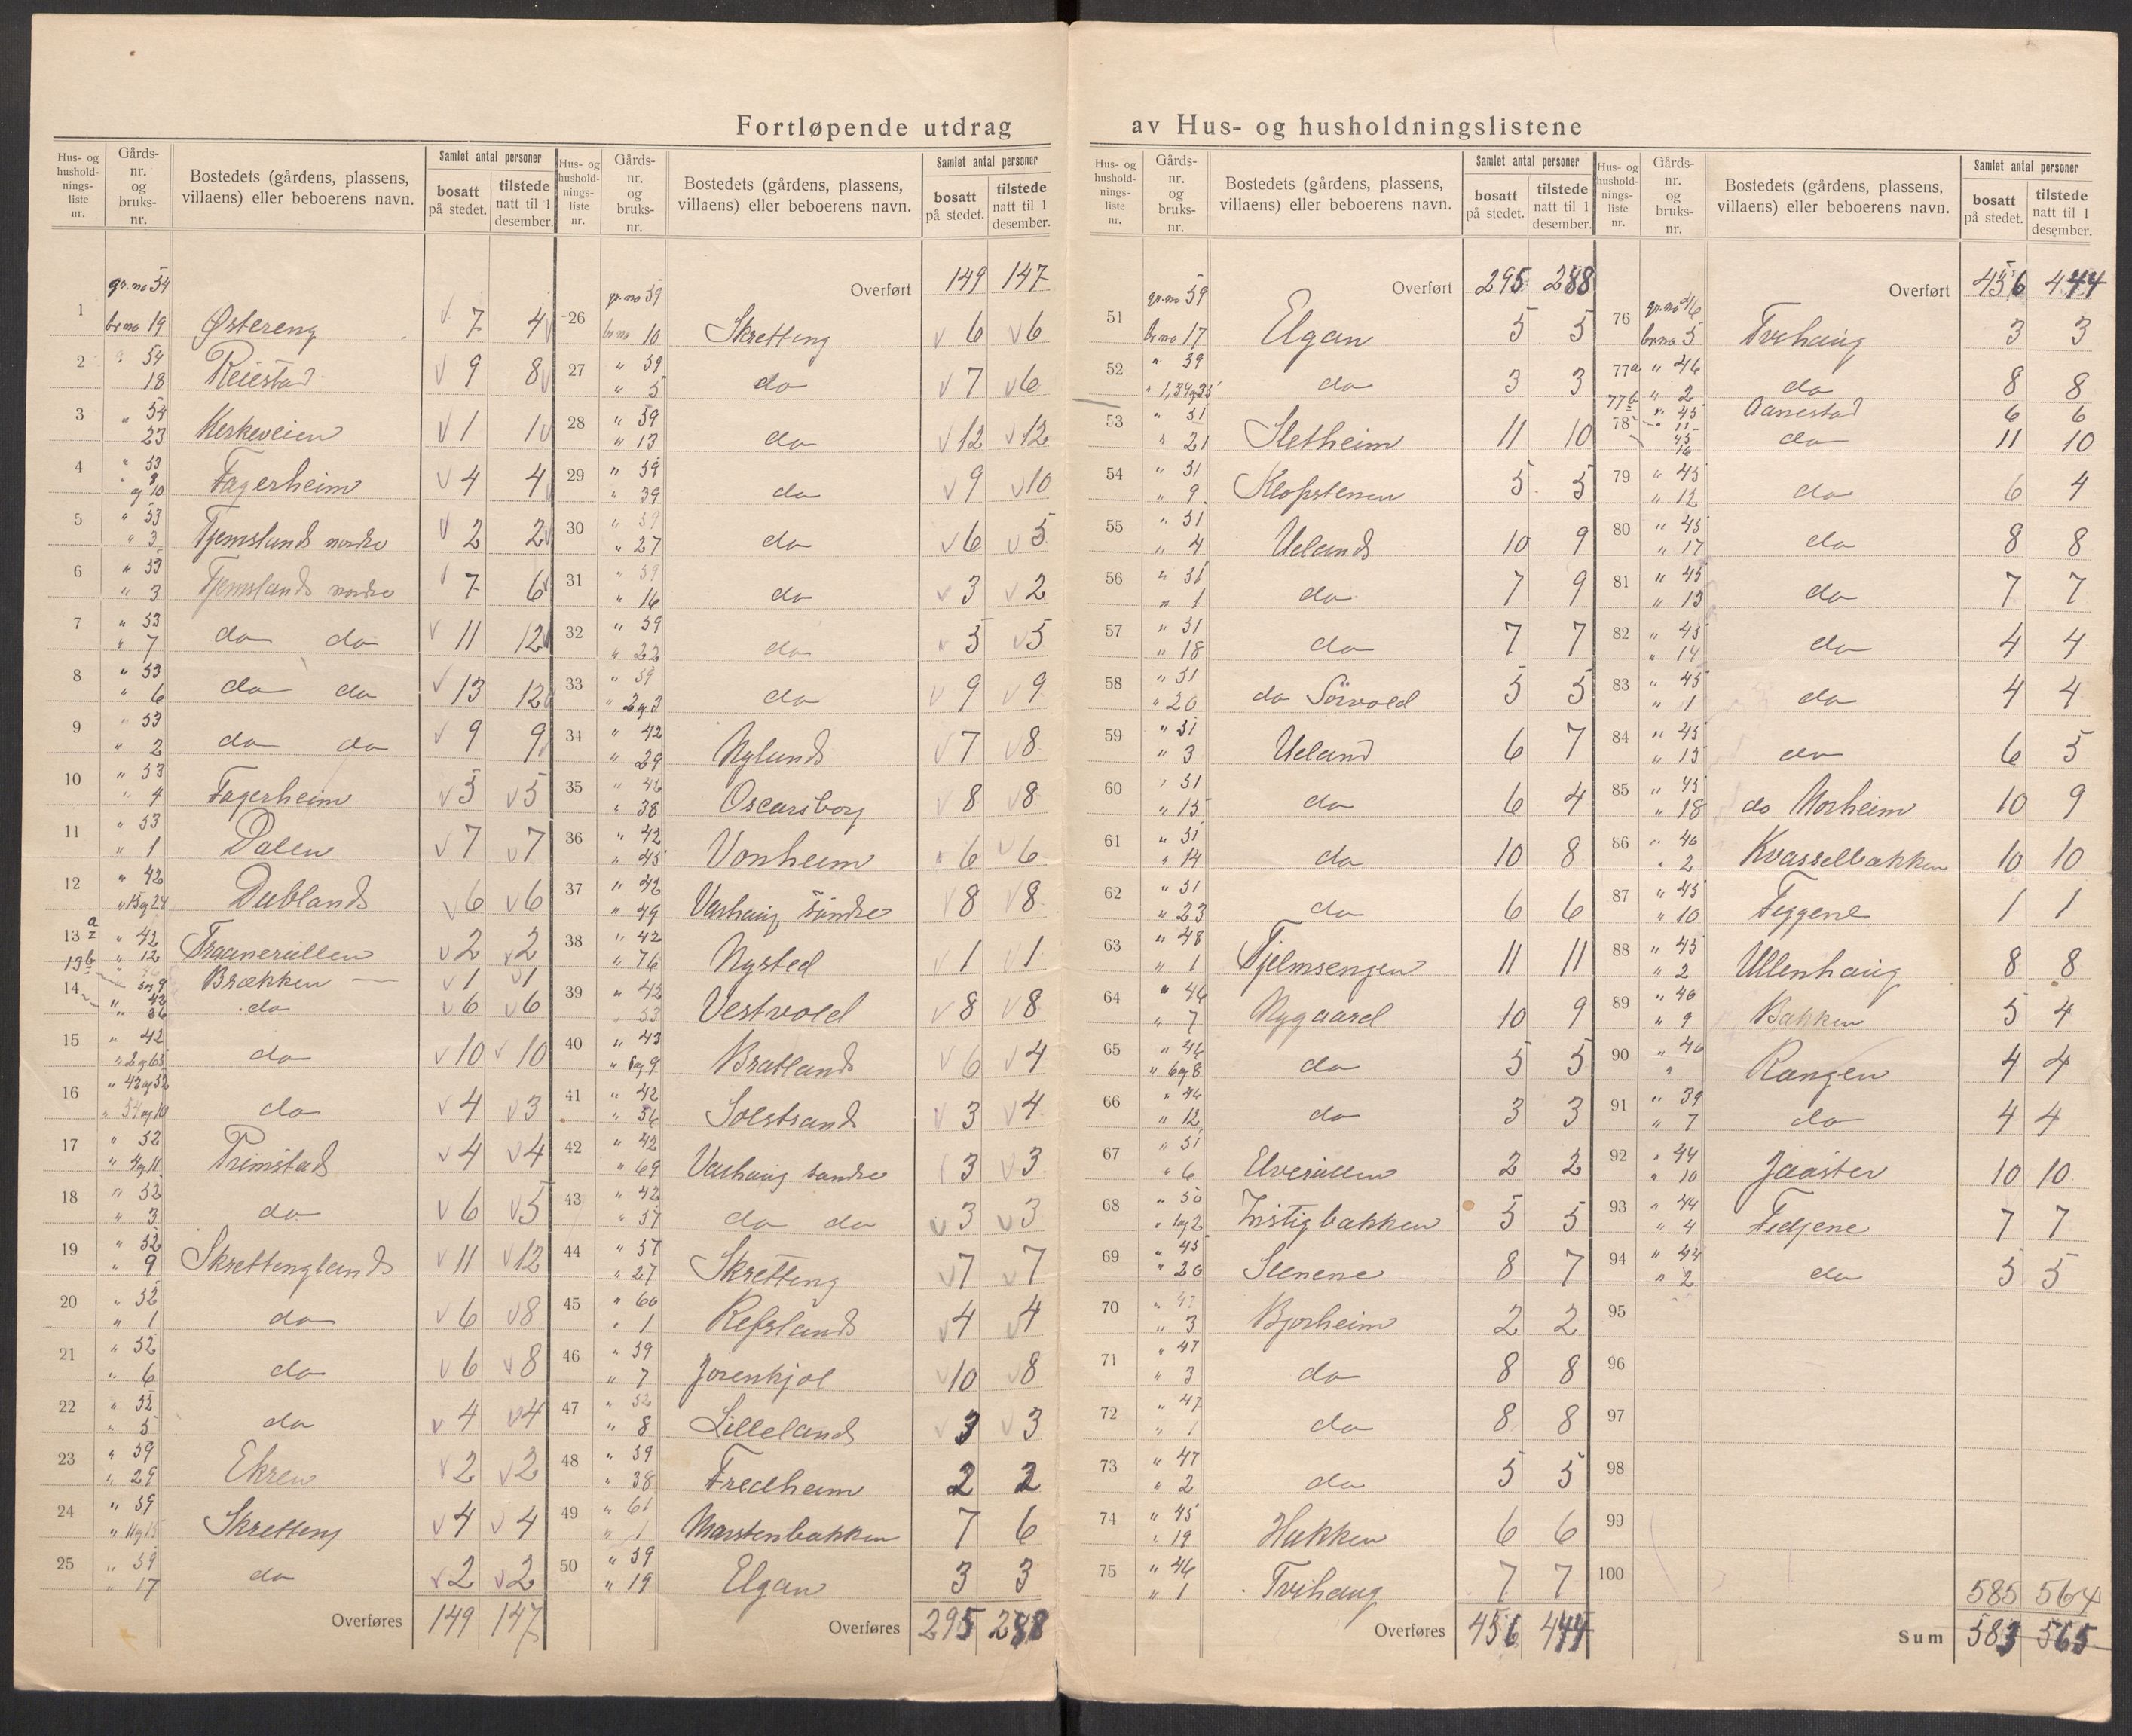 Fortløpende utdrag av Hus- og husholdningslistene
Hus- og husholdningsliste nr. | Gårdsnr. og bruksnr. | Bostedets (gårdens, plassens, villaens) eller beboerens navn. | Samlet antal personer bosatt på stedet. | tilstede natt til 1 desember.
1 gr.no 54 br no 19 Østereng 7 4
2 " 54 18 Reiestad 9 8
3 " 54 " 23 Kirkeveien 1 1
4 " 53 " 8 og 10 Fagerheim 4 4
5 " 53 " 3 Tjemsland nordre 2 2
6 " 53 " 3 Tjemsland nordre 7 6
7 " 53 " 7 do do 11 12
8 " 53 " 6 do do 13 12
9 " 53 " 2 do do 9 9
10 " 53 " 4 Fagerheim 5 5
11 " 53 " 1 Dalen 7 7
12 " 42 " 15 og 24 Dubland 6 6
13a " 42 " 12 Traanerillen 2 2
13b Brækken 1 1
14 " 42 " 36 do 6 6
15 " 42 " 2 og 65 do 10 10
16 " 42 og 52 " 54 og 10 do 4 3
17 " 52 " 4 og 11 Primstad 4 4
18 " 52 " 3 do 6 5
19 " 52 " 9 Skrettingland 11 12
20 " 52 " 1 do 6 8
21 " 52 " 6 do 6 8
22 " 52 " 5 do 4 4
23 " 59 " 29 Ekren 2 2
24 " 59 " 11 og 15 Skretting 4 4
25 " 59 " 17 do 2 2
Overføres 149 147
Hus- og husholdningsliste nr. | Gårdsnr. og bruksnr. | Bostedets (gårdens, plassens, villaens) eller beboerens navn. | Samlet antal personer bosatt på stedet. | tilstede natt til 1 desember.
Overført 149 147
26 gr.no 59 br no 10 Skretting 6 6
27 " 59 " 5 do 7 6
28 " 59 " 13 do 12 12
29 " 59 " 39 do 9 10
30 " 59 " 27 do 6 5
31 " 59 " 16 do 3 2
32 " 59 " 22 do 5 5
33 " 59 " 2 og 3 do 9 9
34 " 42 " 29 Nylund 7 8
35 " 42 " 38 Oscarsborg 8 8
36 " 42 " 45 Vonheim 6 6
37 " 42 " 49 Varhaug søndre 8 8
38 " 42 " 76 Nysted 1 1
39 " 42 " 53 Vestvold 8 8
40 " 43 " 8 og 9 Bratland 6 4
41 " 42 " 56 Solstrand 3 4
42 " 42 " 69 Varhaug søndre 3 3
43 " 42 " 57 do do 3 3
44 " 57 " 27 Skretting 7 7
45 " 60 " 1 Refsland 4 4
46 " 59 " 7 Jorenkjøl 10 8
47 " 52 " 8 Lilleland 3 3
48 " 59 " 38 Fredheim 2 2
49 " 61 " 1 Marstenbakken 7 6
50 " 59 " 19 Elgan 3 3
Overføres 295 288
Hus- og husholdningsliste nr. | Gårdsnr. og bruksnr. | Bostedets (gårdens, plassens, villaens) eller beboerens navn. | Samlet antal personer bosatt på stedet. | tilstede natt til 1 desember.
Overført 295 288
51 gr.no 59 br no 17 Elgan 5 5
52 " 59 " 1, 34 og 35 do 3 3
53 " 51 " 21 Sletheim 11 10
54 " 51 " 9 Klopstenen 5 5
55 " 51 " 4 Ueland 10 9
56 " 51 " 1 do 7 9
57 " 51 " 18 do 7 7
58 " 51 " 20 do Sørvold 5 5
59 " 51 " 3 Ueland 6 7
60 " 51 " 15 do 6 4
61 " 51 " 14 do 10 8
62 " 51 " 23 do 6 6
63 " 48 " 1 Tjelmsengen 11 11
64 " 46 " 7 Nygaard 10 9
65 " 46 " 6 og 8 do 5 5
66 " 46 " 12 do 3 3
67 " 51 " 6 Elverillen 2 2
68 " 50 " 1 og 2 Instigbakken 5 5
69 " 45 " 20 Stenene 8 7
70 " 47 " 3 Bjorheim 2 2
71 " 47 " 3 do 8 8
72 " 47 " 1 do 8 8
73 " 47 " 2 do 5 5
74 " 45 " 19 Hakken 6 6
75 " 46 " 1 Tvihaug 7 7
Overføres 456 444
Hus- og husholdningsliste nr. | Gårdsnr. og bruksnr. | Bostedets (gårdens, plassens, villaens) eller beboerens navn. | Samlet antal personer bosatt på stedet. | tilstede natt til 1 desember.
Overført 456 444
76 gr.no 46 br no 5 Tvihaug 3 3
77a " 46 " 2 do 8 8
77b " 45 " 11 Aanestad 6 6
78 45 16 do 11 10
79 " 45 " 12 do 6 4
80 " 45 " 17 do 8 8
81 " 45 " 13 do 7 7
82 " 45 " 14 do 4 4
83 " 45 " 1 do 4 4
84 " 45 " 15 do 6 5
85 " 45 " 18 do Morheim 10 9
86 " 46 " 2 Kvasselbakken 10 10
87 " 45 " 10 Tiggene 1 1
88 " 45 " 2 Ullenhaug 8 8
89 " 40 " 9 Bakken 5 4
90 " 40 " Rangen 4 4
91 " 39 " 7 do 4 4
92 " 44 " 10 Jaaster 10 10
93 " 44 " 4 Tedjene 7 7
94 " 44 " 2 do 5 5
95
96
97
98
99
100
585 564
Sum 583 565